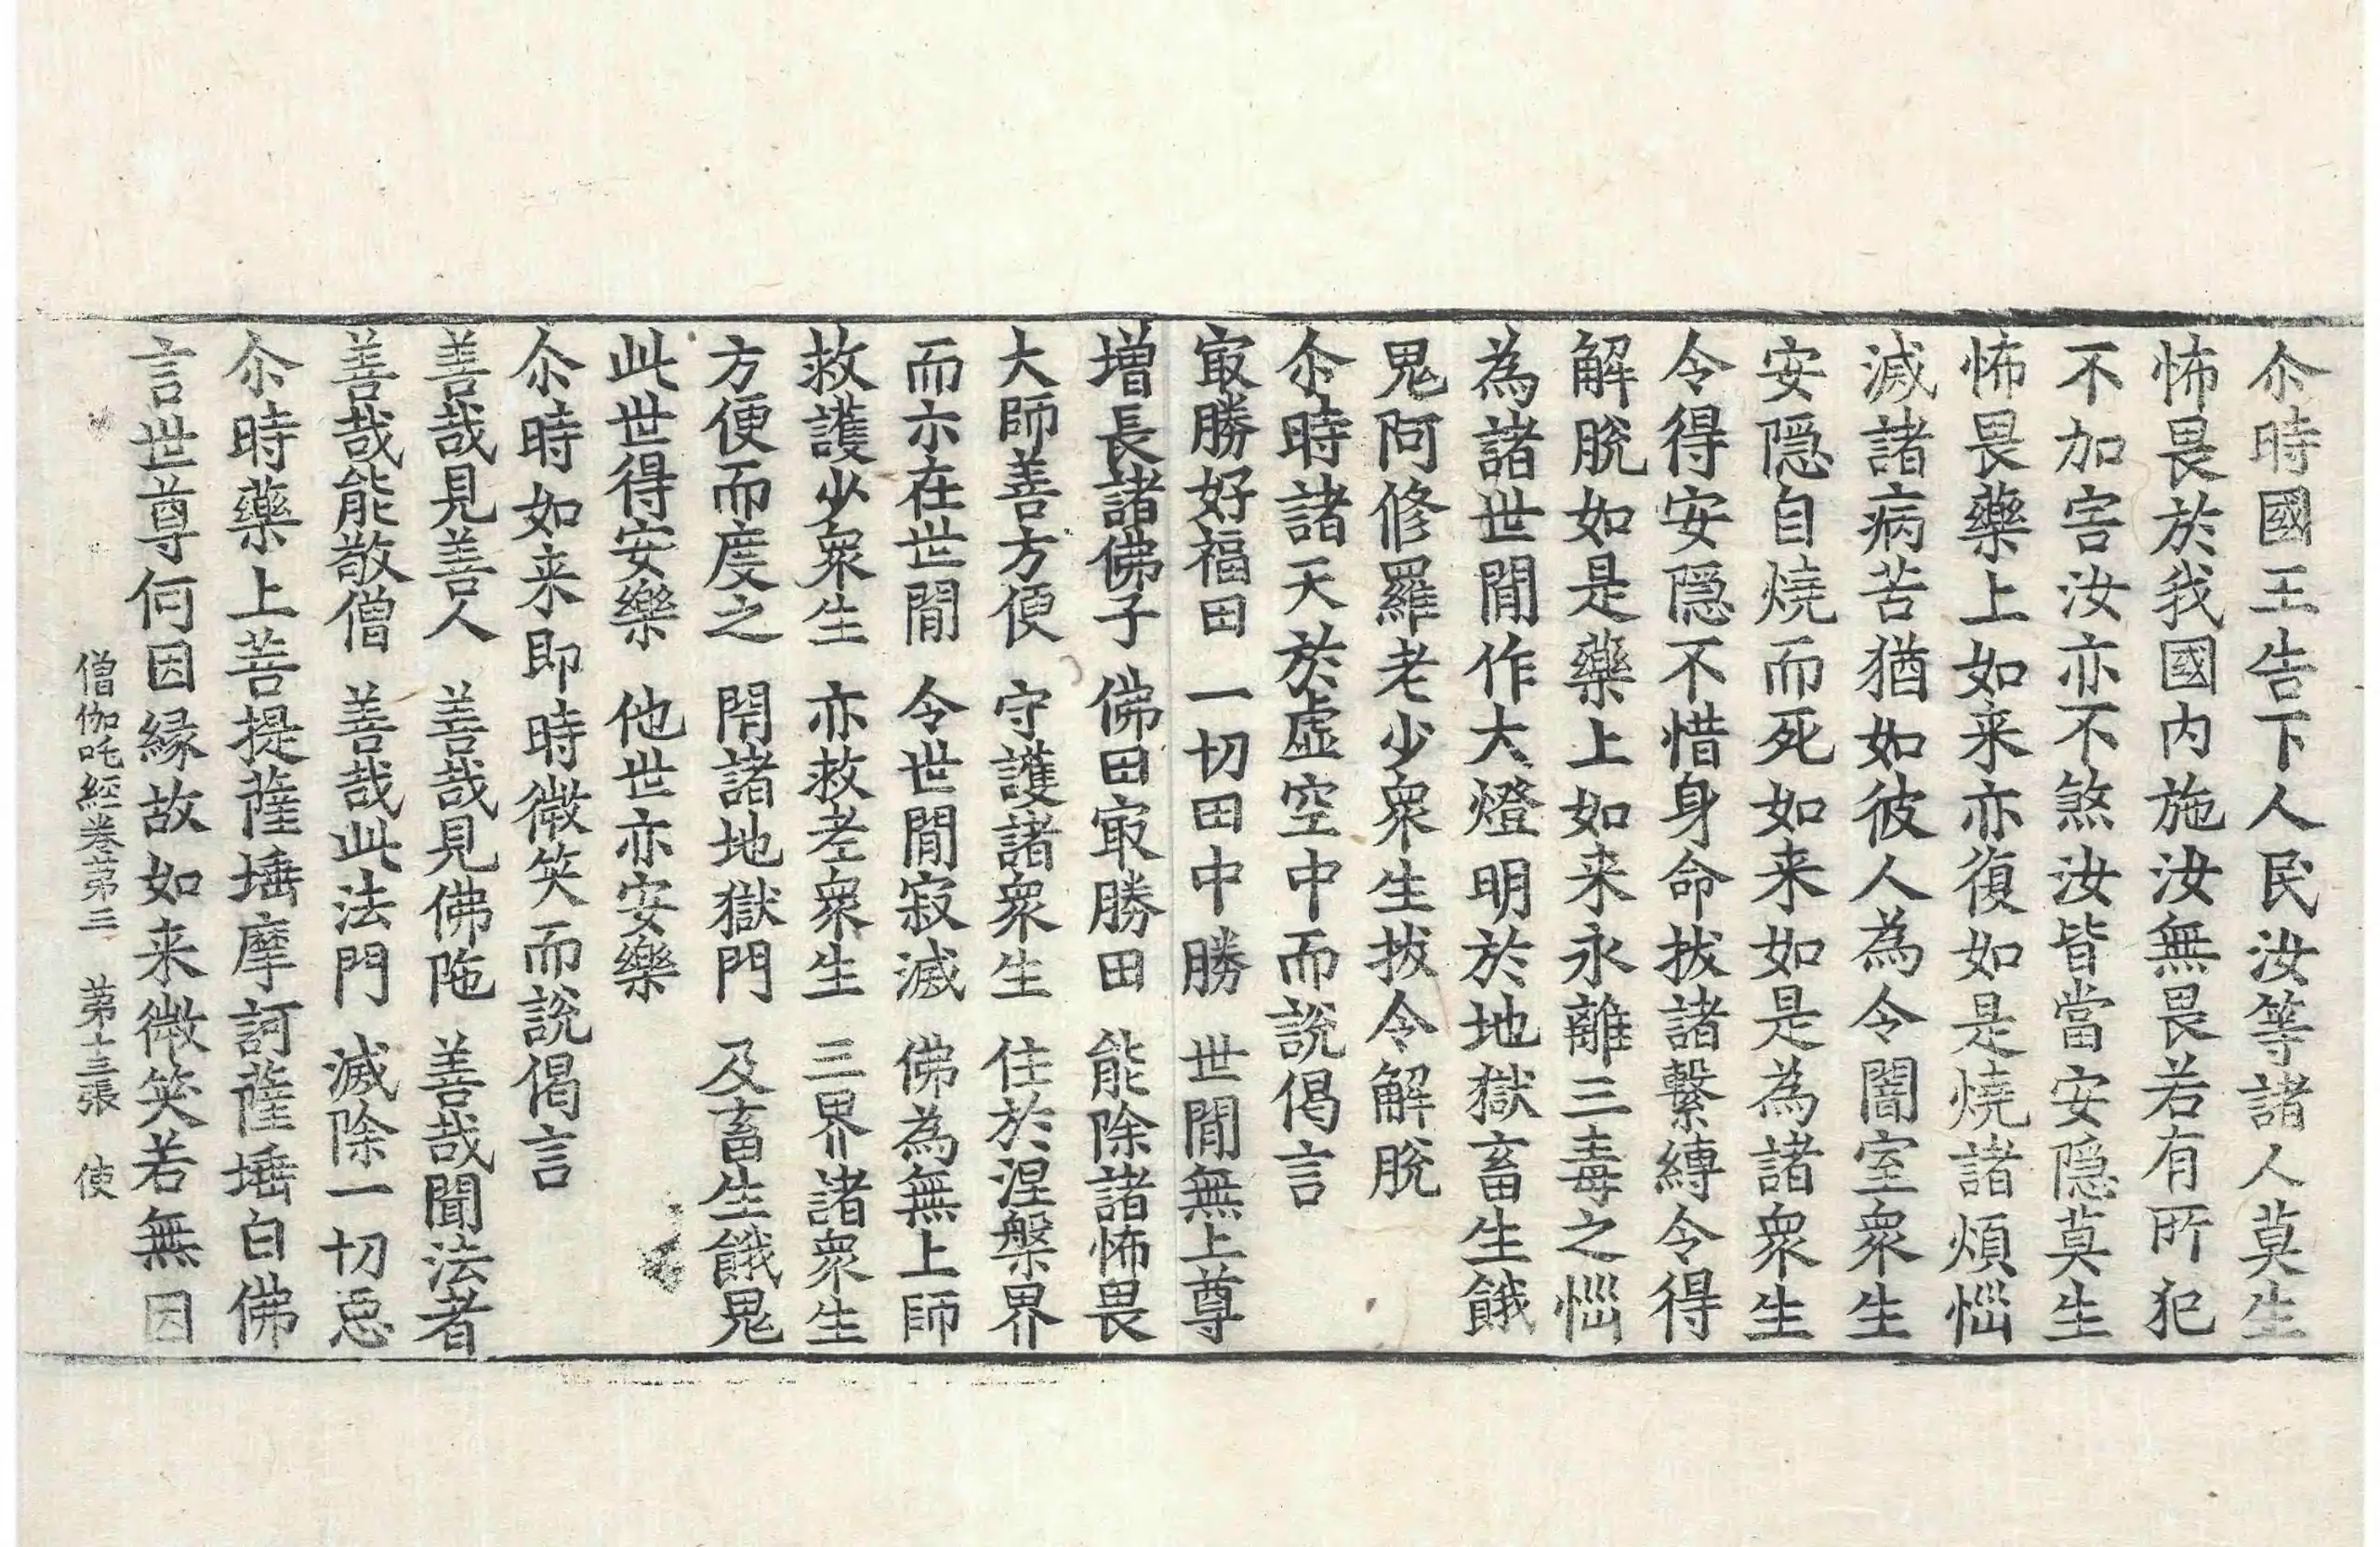 尒時國王告下人民汝等諸人莫生
怖畏於我國内施汝無畏若有所犯
不加害汝亦不煞汝皆當安隠莫生
怖畏藥上如来亦復如是燒諸煩惱
滅諸病苦猶如彼人為令闇室衆生
安隠自燒而死如来如是為諸衆生
令得安隠不惜身命拔諸繫縛令得
解脫如是藥上如来永離三毒之惱
為諸世閒作大燈明於地獄畜生餓
鬼阿修羅老少衆生拔令解脫
尒時諸天於虛空中而說偈言
冣勝好福田　一切田中勝　世閒無上尊
增長諸佛子　佛田冣勝田　能除諸怖畏
大師善方便　守護諸衆生　住於涅槃界
而亦在世閒　令世閒寂滅　佛為無上師
救護少衆生　亦救老衆生　三界諸衆生
方便而度之　閇諸地獄門　及畜生餓鬼
此世得安樂　他世亦安樂
尒時如来即時微笑而說偈言
善哉見善人　善哉見佛陁　善哉聞法者
善哉能敬僧　善哉此法門　滅除一切惡
尒時藥上菩提薩埵摩訶薩埵白佛
言世尊何因緣故如来微笑若無因
僧伽吒經卷第三　第十三張　使